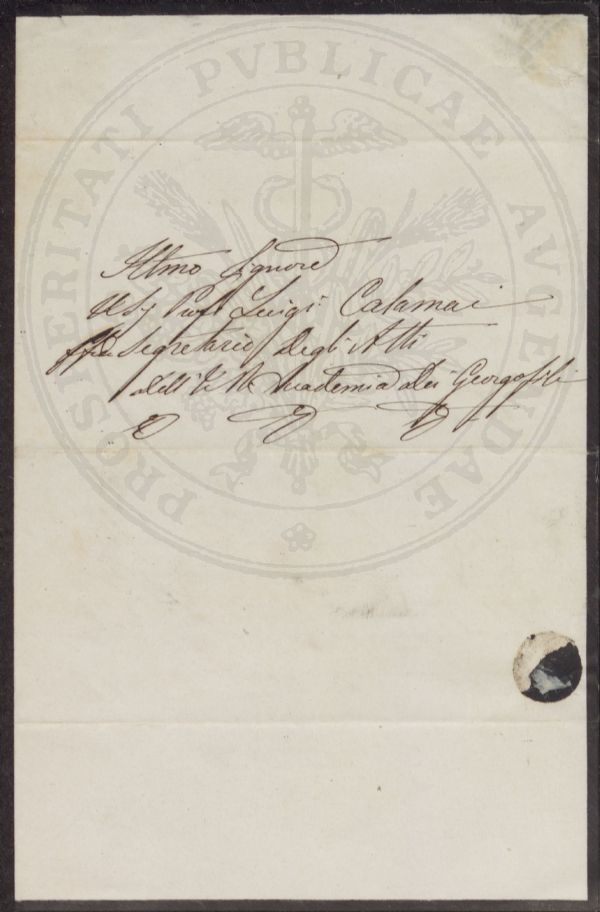 PROSPERITATI PVBLICAE AVGENDAE
Illmo Signore
Il Sig Prof Luigi Calamai
Segretario degli Atti
dell' I e R Accademia dei Georgofili